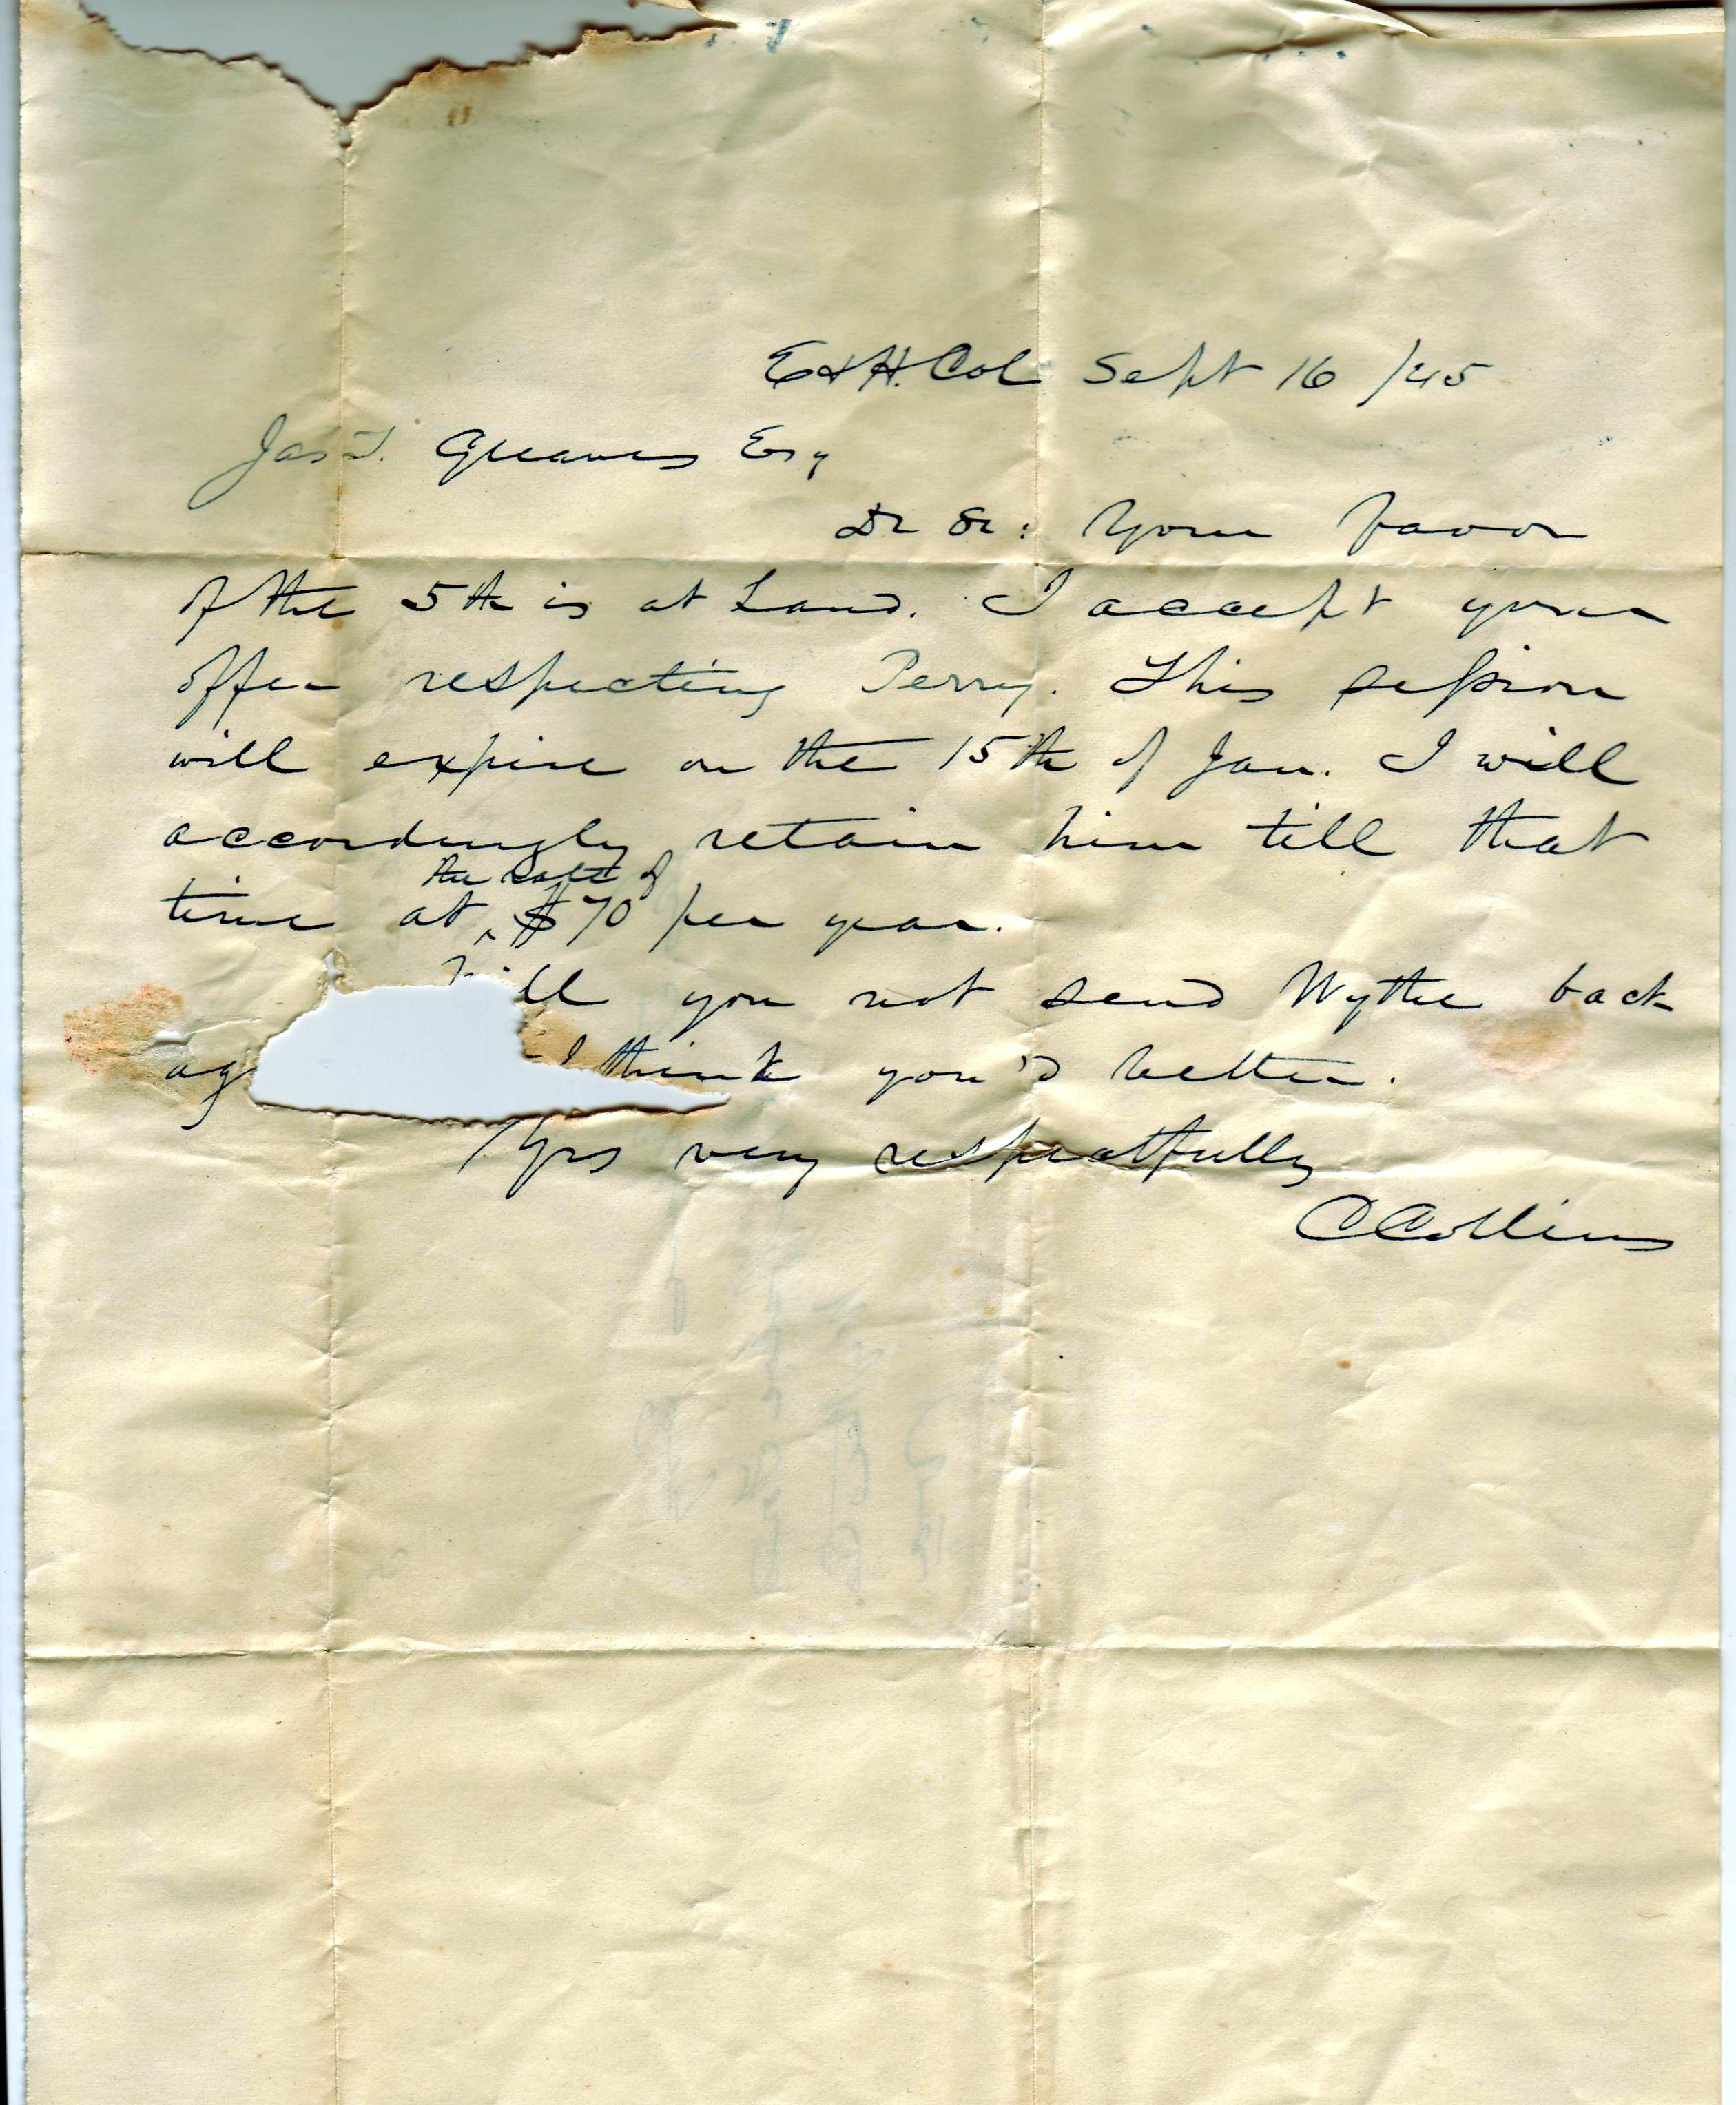 E & H. Col Sept 16 /45
Jas T. Greaves Esq
Dr Sr: Your favor
of the 5th is at hand. I accept your
offer respecting Perry. This session
will expire on the 15th of Jan. I will
accordingly retain him till that
the rate of
time at ^ $70 per year.
ill you not send Wythe back
ag I think you'd better.
Yrs very respectfully
C Collins